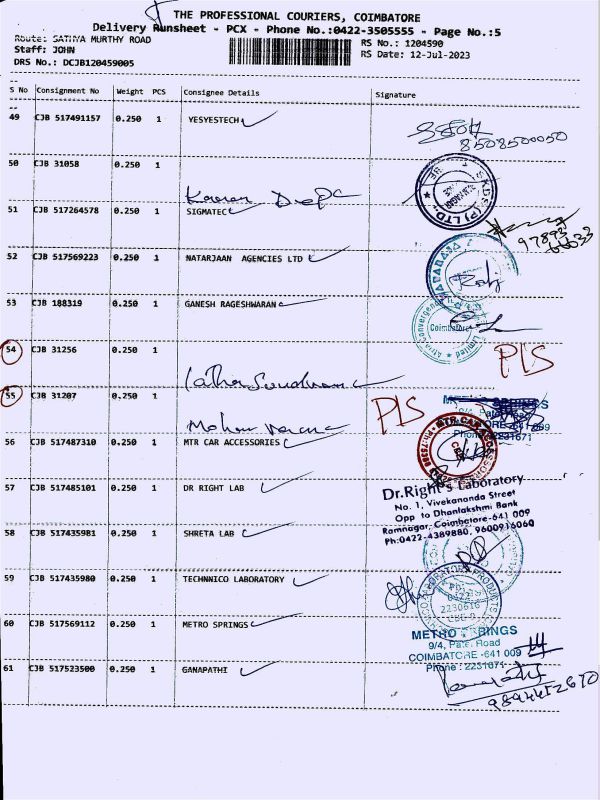 THE PROFESSIONAL COURIERS, COIMBATORE
Delivery Runsheet - PCX - Phone No.:0422-3505555 - Page No.:5
Route: SATHYA MURTHY ROAD
RS No.: 1204590
Staff: JOHN
RS Date: 12-Jul-2023
DRS No.: DCJB120459005
S No Consignment No Weight PCS Consignee Details Signature
49 CJB 517491157 0.250 1 YESYESTECH
8508500050
50 CJB 31058 0.250 1
51 CJB 517264578 0.250 1 SIGMATEC
52 CJB 517569223 0.250 1 NATARJAAN AGENCIES LTD
53 CJB 188319 0.250 1 GANESH RAGESHWARAN
Coimbatore
54 CJB 31256 0.250 1
PLS
55 CJB 31207 0.250 1
PLS
56 CJB 517487310 0.250 1 MTR CAR ACCESSORIES
MTR CAR ACCESSORIES
57 CJB 517485101 0.250 1 DR RIGHT LAB
Dr.Right's Laboratory
No. 1, Vivekananda Street
Opp to Dhanlakshmi Bank
Ramnagar, Coimbatore-641 009
Ph:0422-4389880, 9600916060
58 CJB 517435981 0.250 1 SHRETA LAB
59 CJB 517435980 0.250 1 TECHNNICO LABORATORY
0422
2230616
60 CJB 517569112 0.250 1 METRO SPRINGS
METRO SPRINGS
9/4, Patel Road
COIMBATORE -641 009
Phone : 2231671
61 CJB 517523500 0.250 1 GANAPATHI